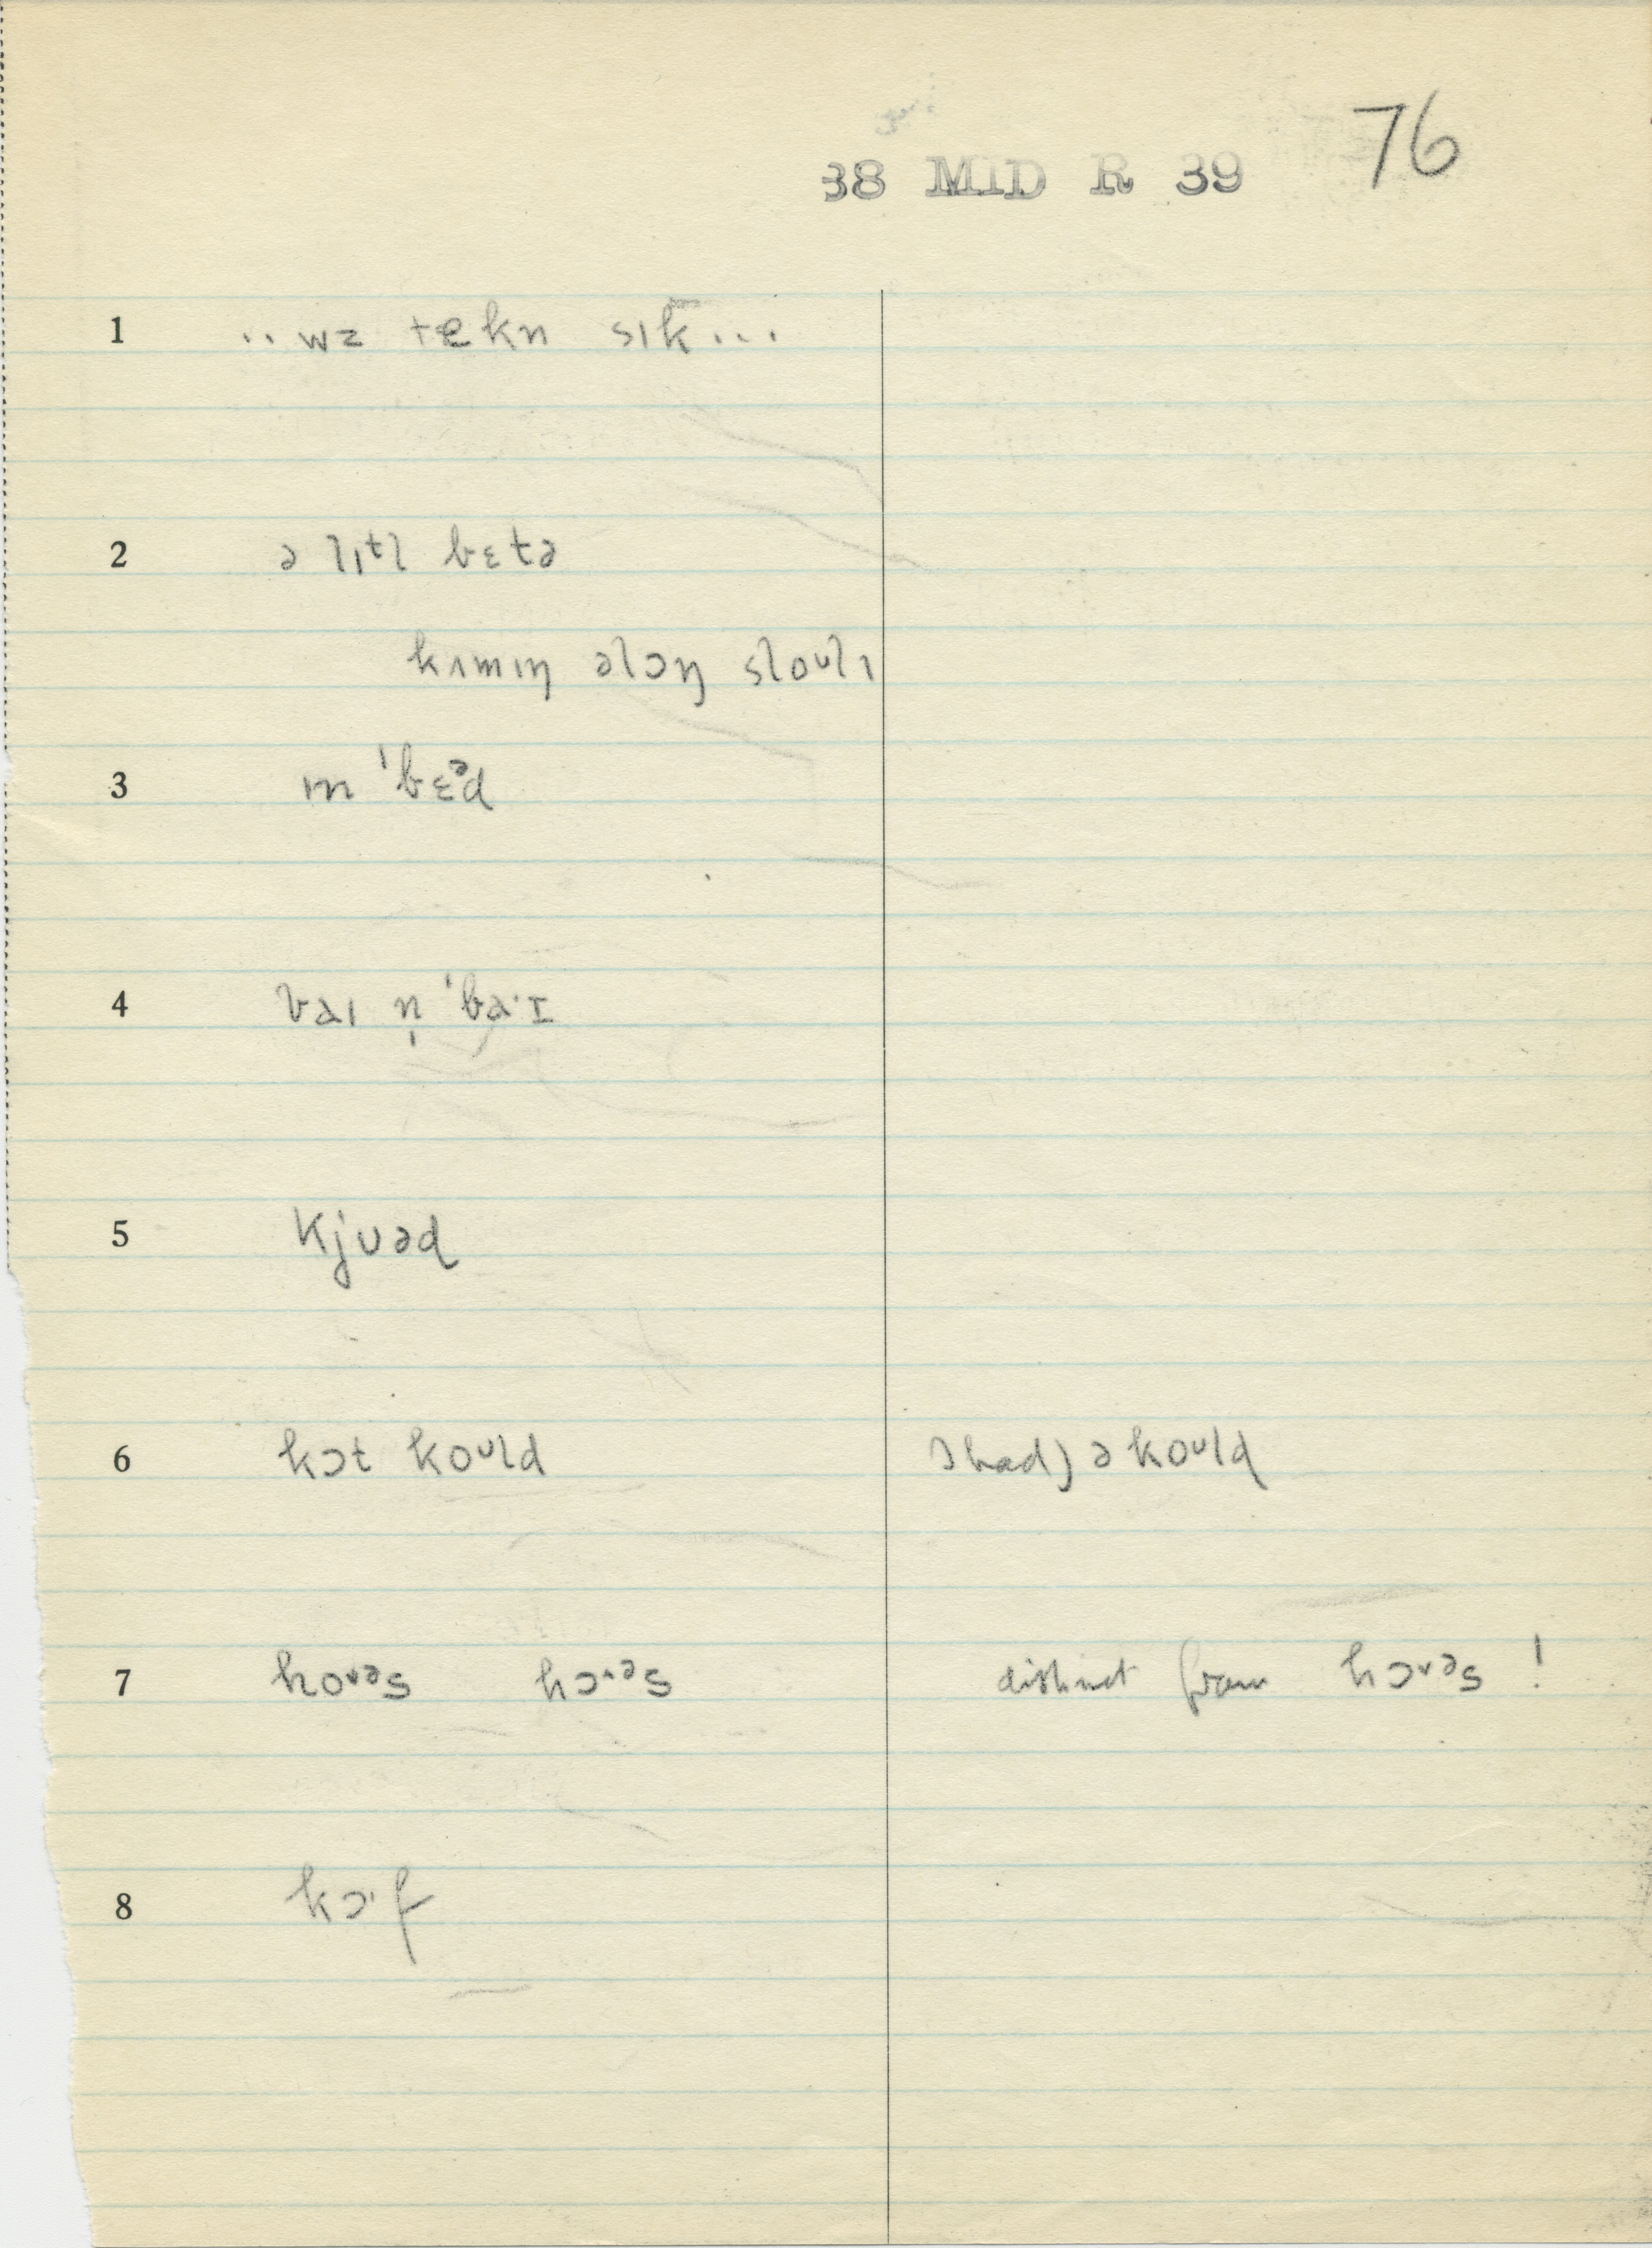 38 MID R 39 76
1 ..wz tekn sɪk...
2 ə lɪtl bɛtə
kʌmɪŋ əlɔŋ sloᵘlɪ
3 ɪn ˈbɛᵊd
4 baɪ n̩ ˈbaˑɪ
5 kjʊəd
6 kɔt koᵘld Ihad) ə koᵘld
7 hoᵛᵊs hɔᶺᵊs distinct from hɔᵛᵊs !
8 kɔˑf